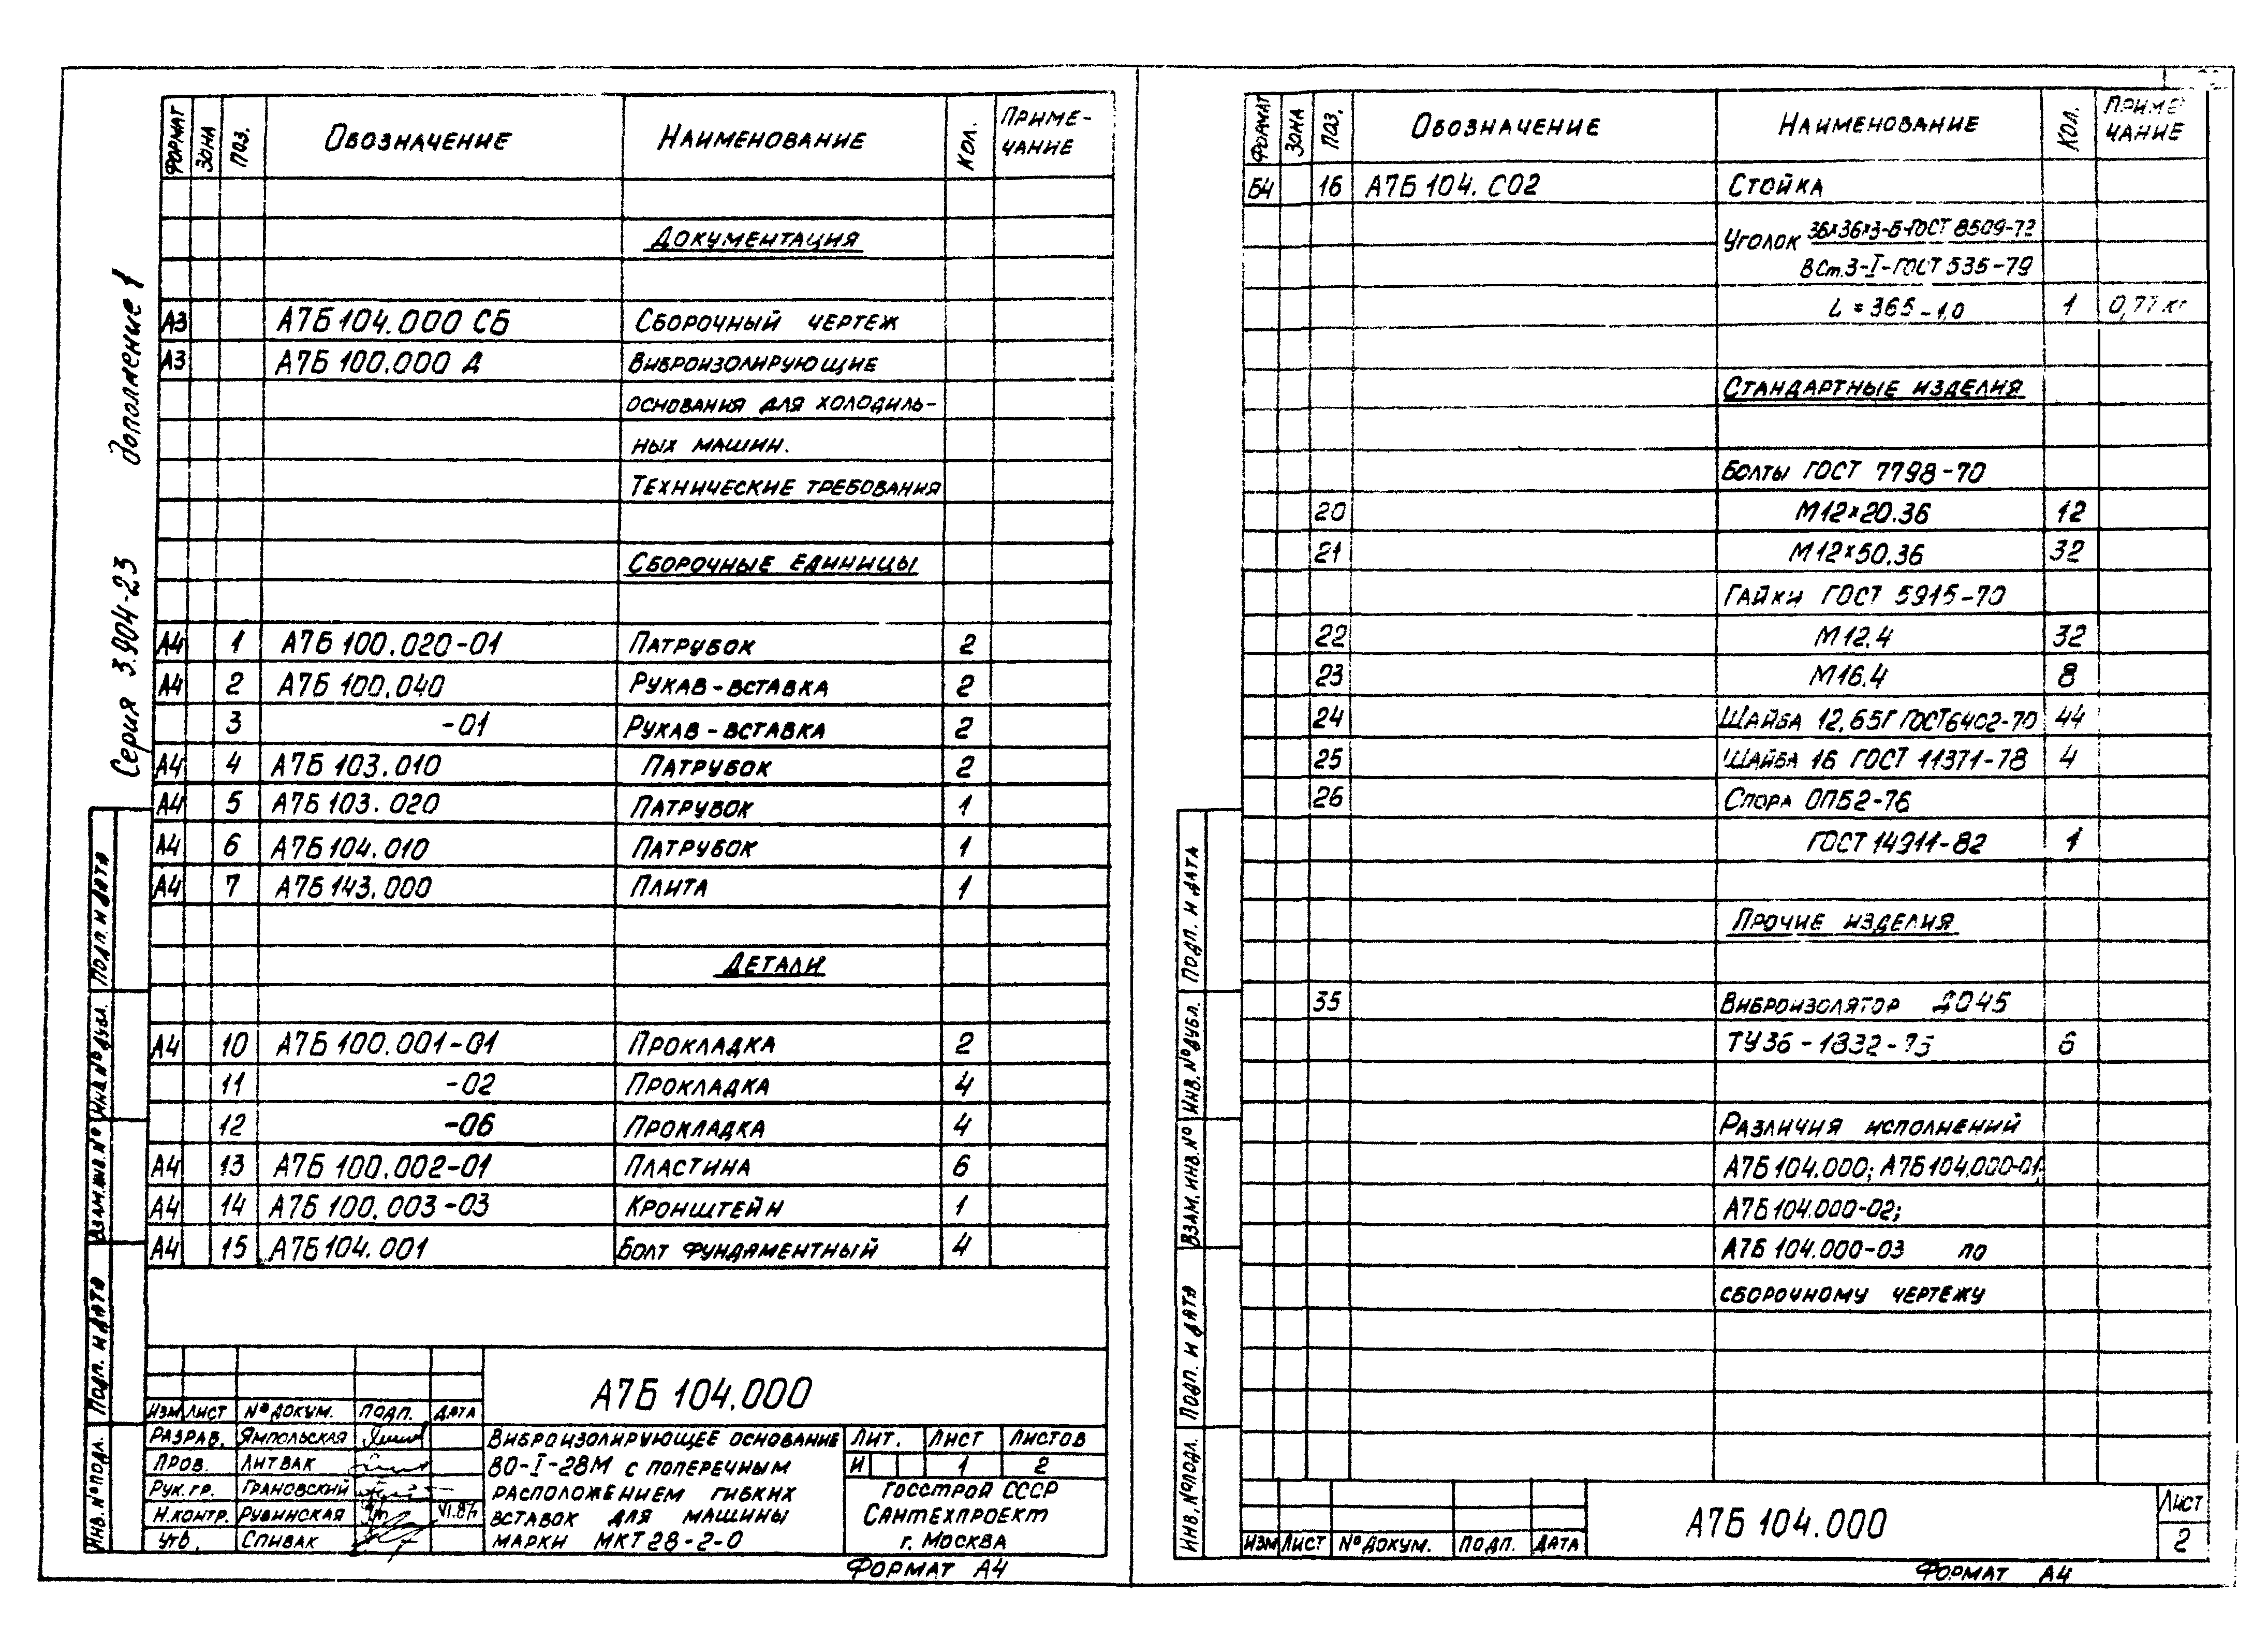 Серия 3.904-23 дополнение 1
ФОРМАТ ЗОНА ПОЗ. ОБОЗНАЧЕНИЕ НАИМЕНОВАНИЕ КОЛ. ПРИМЕ-
ЧАНИЕ
ДОКУМЕНТАЦИЯ
А3 А7Б 104.000 СБ СБОРОЧНЫЙ ЧЕРТЕЖ
А3 А7Б 100.000 Д ВИБРОИЗОЛИРУЮЩИЕ
ОСНОВАНИЯ ДЛЯ ХОЛОДИЛЬ-
НЫХ МАШИН.
ТЕХНИЧЕСКИЕ ТРЕБОВАНИЯ
СБОРОЧНЫЕ ЕДИНИЦЫ
А4 1 А7Б 100.020-01 ПАТРУБОК 2
А4 2 А7Б 100.040 РУКАВ-ВСТАВКА 2
3 -01 РУКАВ-ВСТАВКА 2
А4 4 А7Б 103.010 ПАТРУБОК 2
А4 5 А7Б 103.020 ПАТРУБОК 1
А4 6 А7Б 104.010 ПАТРУБОК 1
А4 7 А7Б 143.000 ПЛИТА 1
ДЕТАЛИ
А4 10 А7Б 100.001-01 ПРОКЛАДКА 2
11 -02 ПРОКЛАДКА 4
12 -06 ПРОКЛАДКА 4
А4 13 А7Б 100.002-01 ПЛАСТИНА 6
А4 14 А7Б 100.003-03 КРОНШТЕЙН 1
А4 15 А7Б 104.001 БОЛТ ФУНДАМЕНТНЫЙ 4
ПОДП. И ДАТА
ИНВ.№ ДУБЛ.
ВЗАМ.ИНВ.№
ПОДП. И ДАТА
ИНВ.№ ПОДЛ.
А7Б 104.000
ИЗМ ЛИСТ № ДОКУМ. ПОДП. ДАТА
РАЗРАБ. ЯМПОЛЬСКАЯ
ПРОВ. ЛИТВАК
РУК.ГР. ГРАНОВСКИЙ
Н.КОНТР. РУБИНСКАЯ
УТВ. СПИВАК
ВИБРОИЗОЛИРУЮЩЕЕ ОСНОВАНИЕ
ВО-I-28М С ПОПЕРЕЧНЫМ
РАСПОЛОЖЕНИЕМ ГИБКИХ
ВСТАВОК ДЛЯ МАШИНЫ
МАРКИ МКТ28-2-0
ЛИТ. ЛИСТ ЛИСТОВ
И 1 2
ГОССТРОЙ СССР
САНТЕХПРОЕКТ
г. МОСКВА
ФОРМАТ А4
ФОРМАТ ЗОНА ПОЗ. ОБОЗНАЧЕНИЕ НАИМЕНОВАНИЕ КОЛ. ПРИМЕ
ЧАНИЕ
Б4 16 А7Б 104.С02 СТОЙКА
УГОЛОК 36×36×3-Б-ГОСТ 8509-72
ВСт.3-I-ГОСТ 535-79
L = 365-1,0 1 0,77 кг
СТАНДАРТНЫЕ ИЗДЕЛИЯ
БОЛТЫ ГОСТ 7798-70
20 М12×20.36 12
21 М12×50.36 32
ГАЙКИ ГОСТ 5915-70
22 М12.4 32
23 М16.4 8
24 ШАЙБА 12.65Г ГОСТ6402-70 44
25 ШАЙБА 16 ГОСТ 11371-78 4
26 СПОРА ОПБ2-76
ГОСТ 14911-82 1
ПРОЧИЕ ИЗДЕЛИЯ
35 ВИБРОИЗОЛЯТОР ДО45
ТУ36-1832-75 6
РАЗЛИЧИЯ ИСПОЛНЕНИЙ
А7Б 104.000; А7Б 104.000-01;
А7Б 104.000-02;
А7Б 104.000-03 ПО
СБОРОЧНОМУ ЧЕРТЕЖУ
ПОДП. И ДАТА
ИНВ.№ ДУБЛ.
ВЗАМ.ИНВ.№
ПОДП. И ДАТА
ИНВ.№ ПОДЛ.
ИЗМ ЛИСТ № ДОКУМ. ПОДП. ДАТА
А7Б 104.000
ЛИСТ
2
ФОРМАТ А4